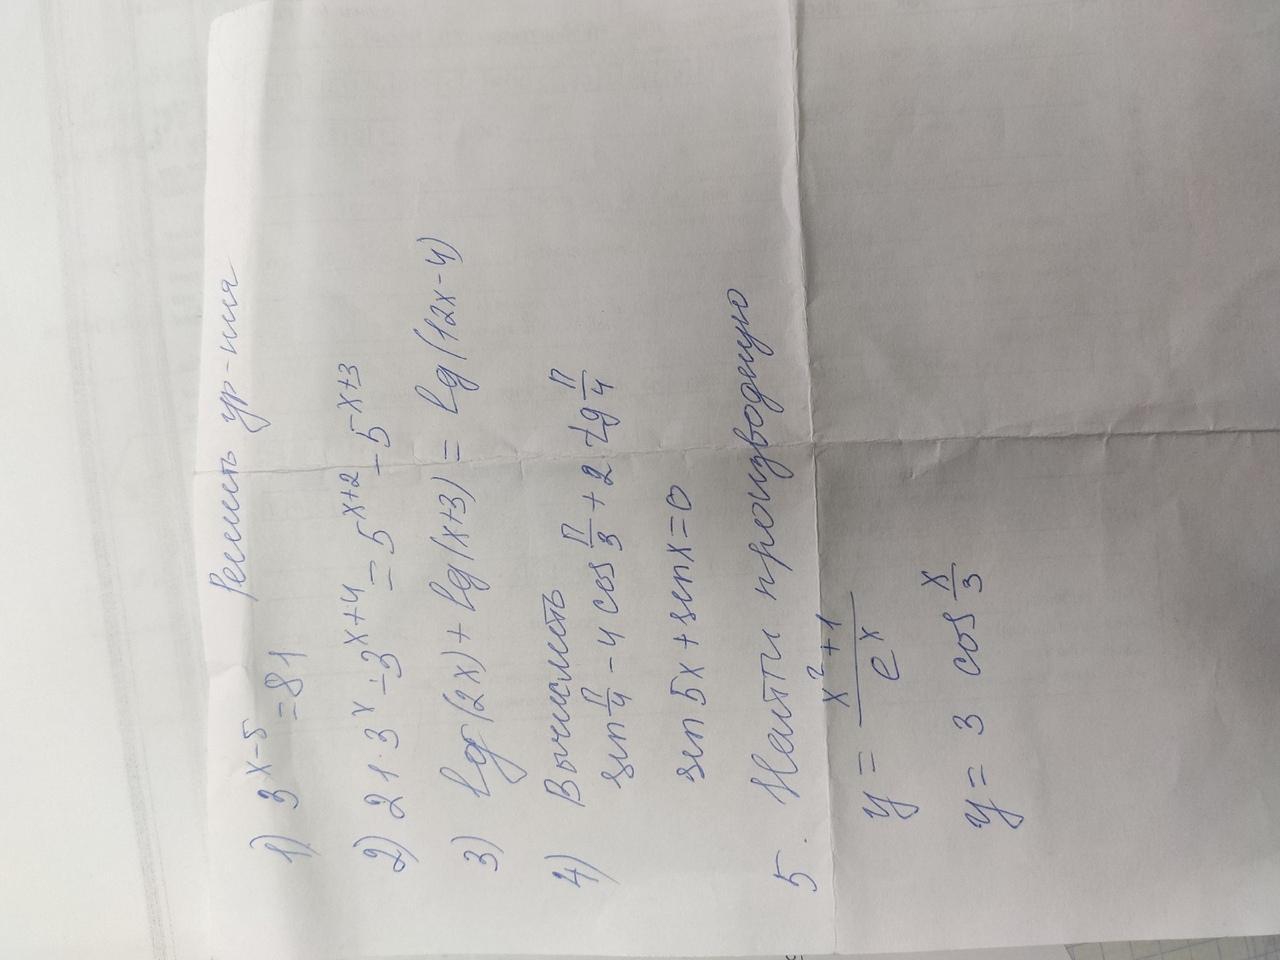 Решить ур-ния
1) 3^(x-5) = 81
2) 21·3^x - 3^(x+4) = 5^(x+2) - 5^(x+3)
3) lg(2x) + lg(x+3) = lg(12x-4)
4) Вычислить
sin π/4 - 4 cos π/3 + 2 tg π/4
sin 5x + sin x = 0
5. Найти производную
y = (x^2+1)/e^x
y = 3 cos x/3